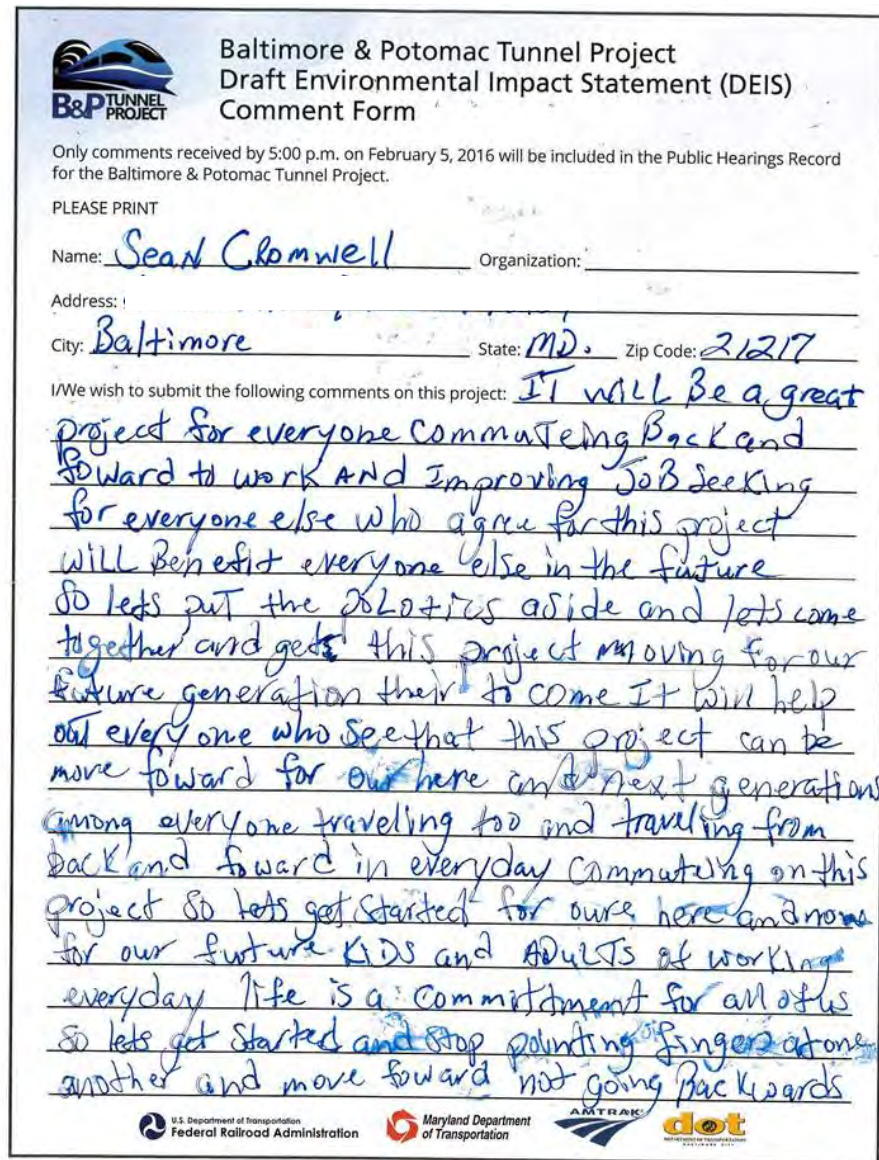 B&P TUNNEL PROJECT
Baltimore & Potomac Tunnel Project
Draft Environmental Impact Statement (DEIS)
Comment Form
Only comments received by 5:00 p.m. on February 5, 2016 will be included in the Public Hearings Record
for the Baltimore & Potomac Tunnel Project.
PLEASE PRINT
Name: Sean Cromwell Organization:
Address:
City: Baltimore State: MD. Zip Code: 21217
I/We wish to submit the following comments on this project: IT WILL Be a great
project for everyone CommuTeing Back and
foward to work AND Improving JOB Seeking
for everyone else who agree for this project
will Benefit everyone else in the future
So lets put the polotics aside and lets come
together and gets this project moving for our
future generation their to come It will help
out every one who see that this project can be
move foward for our here and next generations
among everyone traveling too and traveling from
back and foward in everyday commuteing on this
project So lets get started for oure here and now
for our future KIDS and ADULTS of working
everyday life is a committment for all of us
So lets get Started and stop pointing fingers at one
another and move foward not going Backwards
U.S. Department of Transportation
Federal Railroad Administration
Maryland Department
of Transportation
AMTRAK
dot
DEPARTMENT OF TRANSPORTATION
BALTIMORE CITY